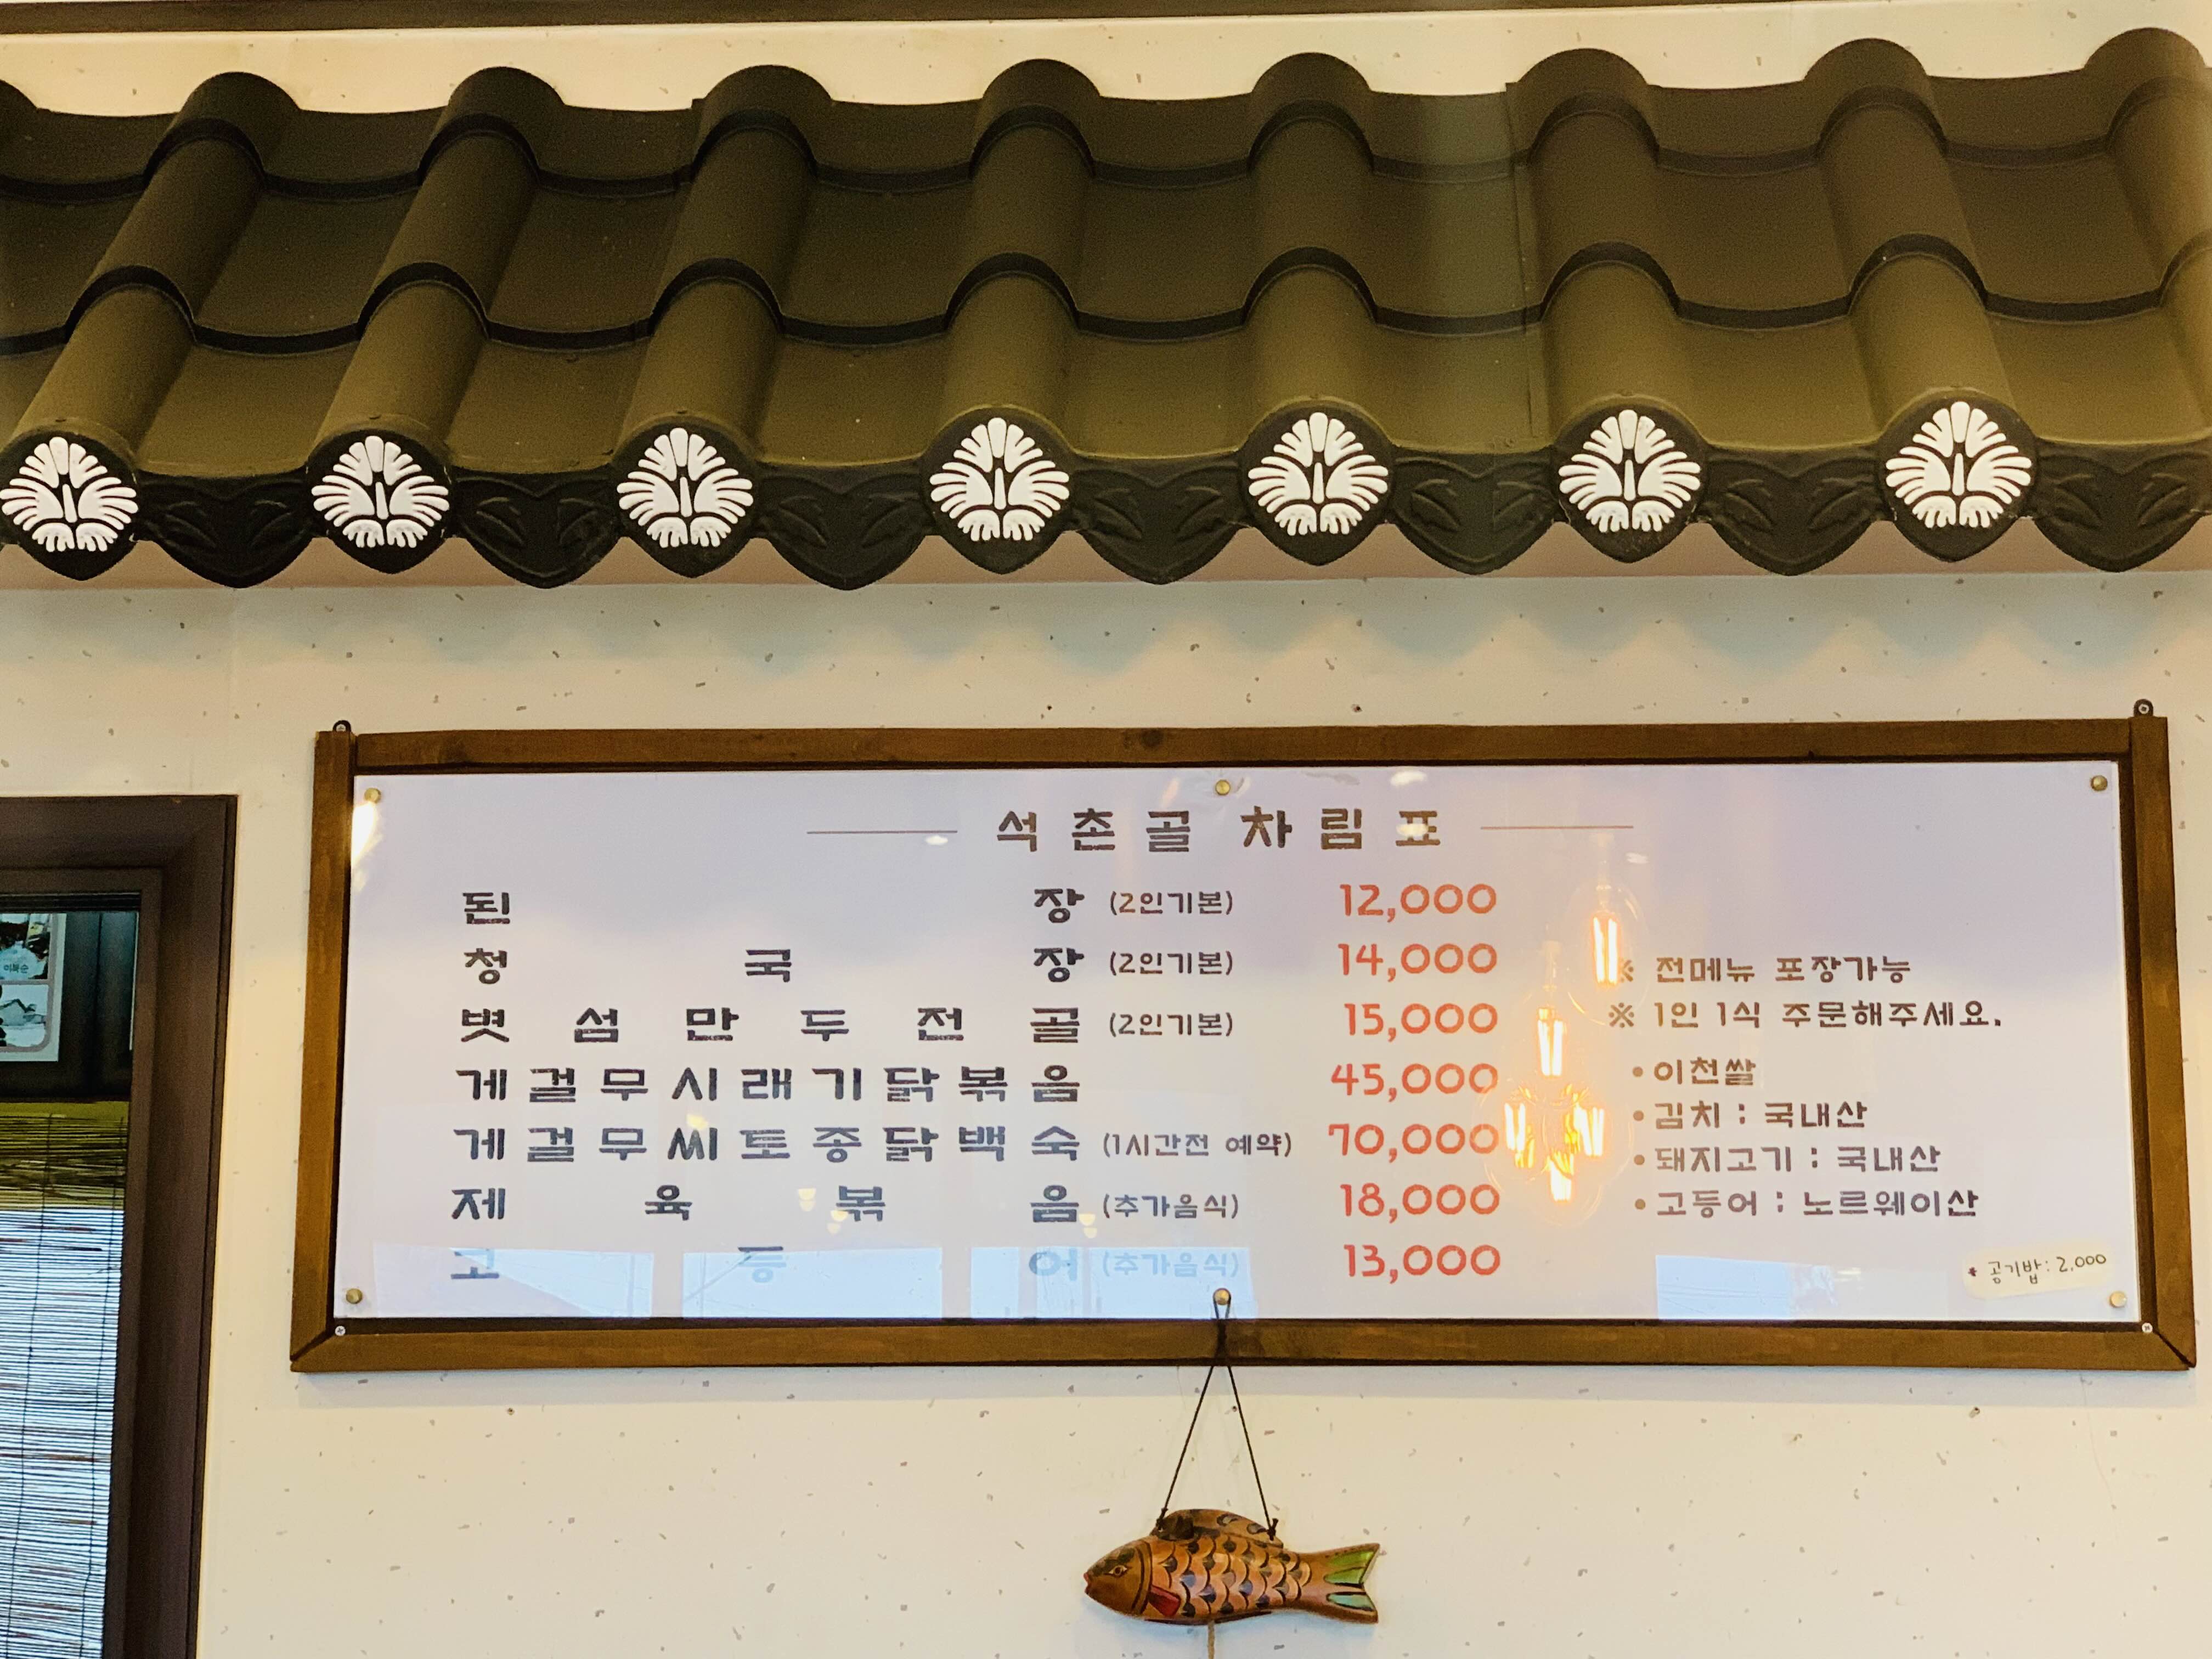 석촌골 차림표
된장 (2인기본) 12,000
청국장 (2인기본) 14,000
볏섬만두전골 (2인기본) 15,000
게걸무시래기닭볶음 45,000
게걸무씨토종닭백숙 (1시간전 예약) 70,000
제육볶음 (추가음식) 18,000
고등어 (추가음식) 13,000
※ 전메뉴 포장가능
※ 1인 1식 주문해주세요.
• 이천쌀
• 김치 : 국내산
• 돼지고기 : 국내산
• 고등어 : 노르웨이산
* 공기밥: 2,000